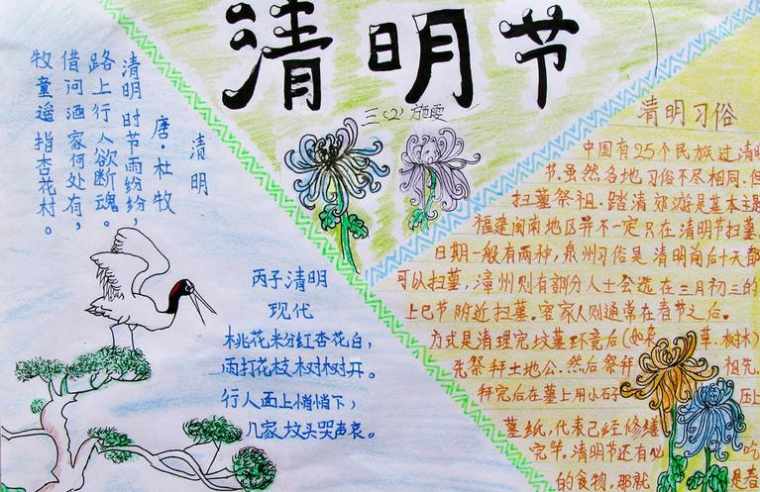 清明节
三(2) 施
清明
唐·杜牧
清明时节雨纷纷,
路上行人欲断魂。
借问酒家何处有,
牧童遥指杏花村。
丙子清明
现代
桃花粉红杏花白,
雨打花枝树树开。
行人面上悄悄下,
几家坟头哭声哀。
清明习俗
中国有25个民族过清明
节.虽然各地习俗不尽相同.但
扫墓祭祖.踏清郊游是基本主题
福建闽南地区并不一定只在清明节扫墓.
日期一般有两种,泉州习俗是清明前后十天都
可以扫墓,漳州则有部分人士会选在三月初三的
上巳节附近扫墓.客家人则通常在春节之后.
方式是清理完坟墓环境后(如 草.树木)
先祭拜土地公.然后祭拜 祖先.
拜完后在墓上用小石子 压上
墓纸,代表已经修缮
完毕.清明节还有 吃
的食物,那就 是春